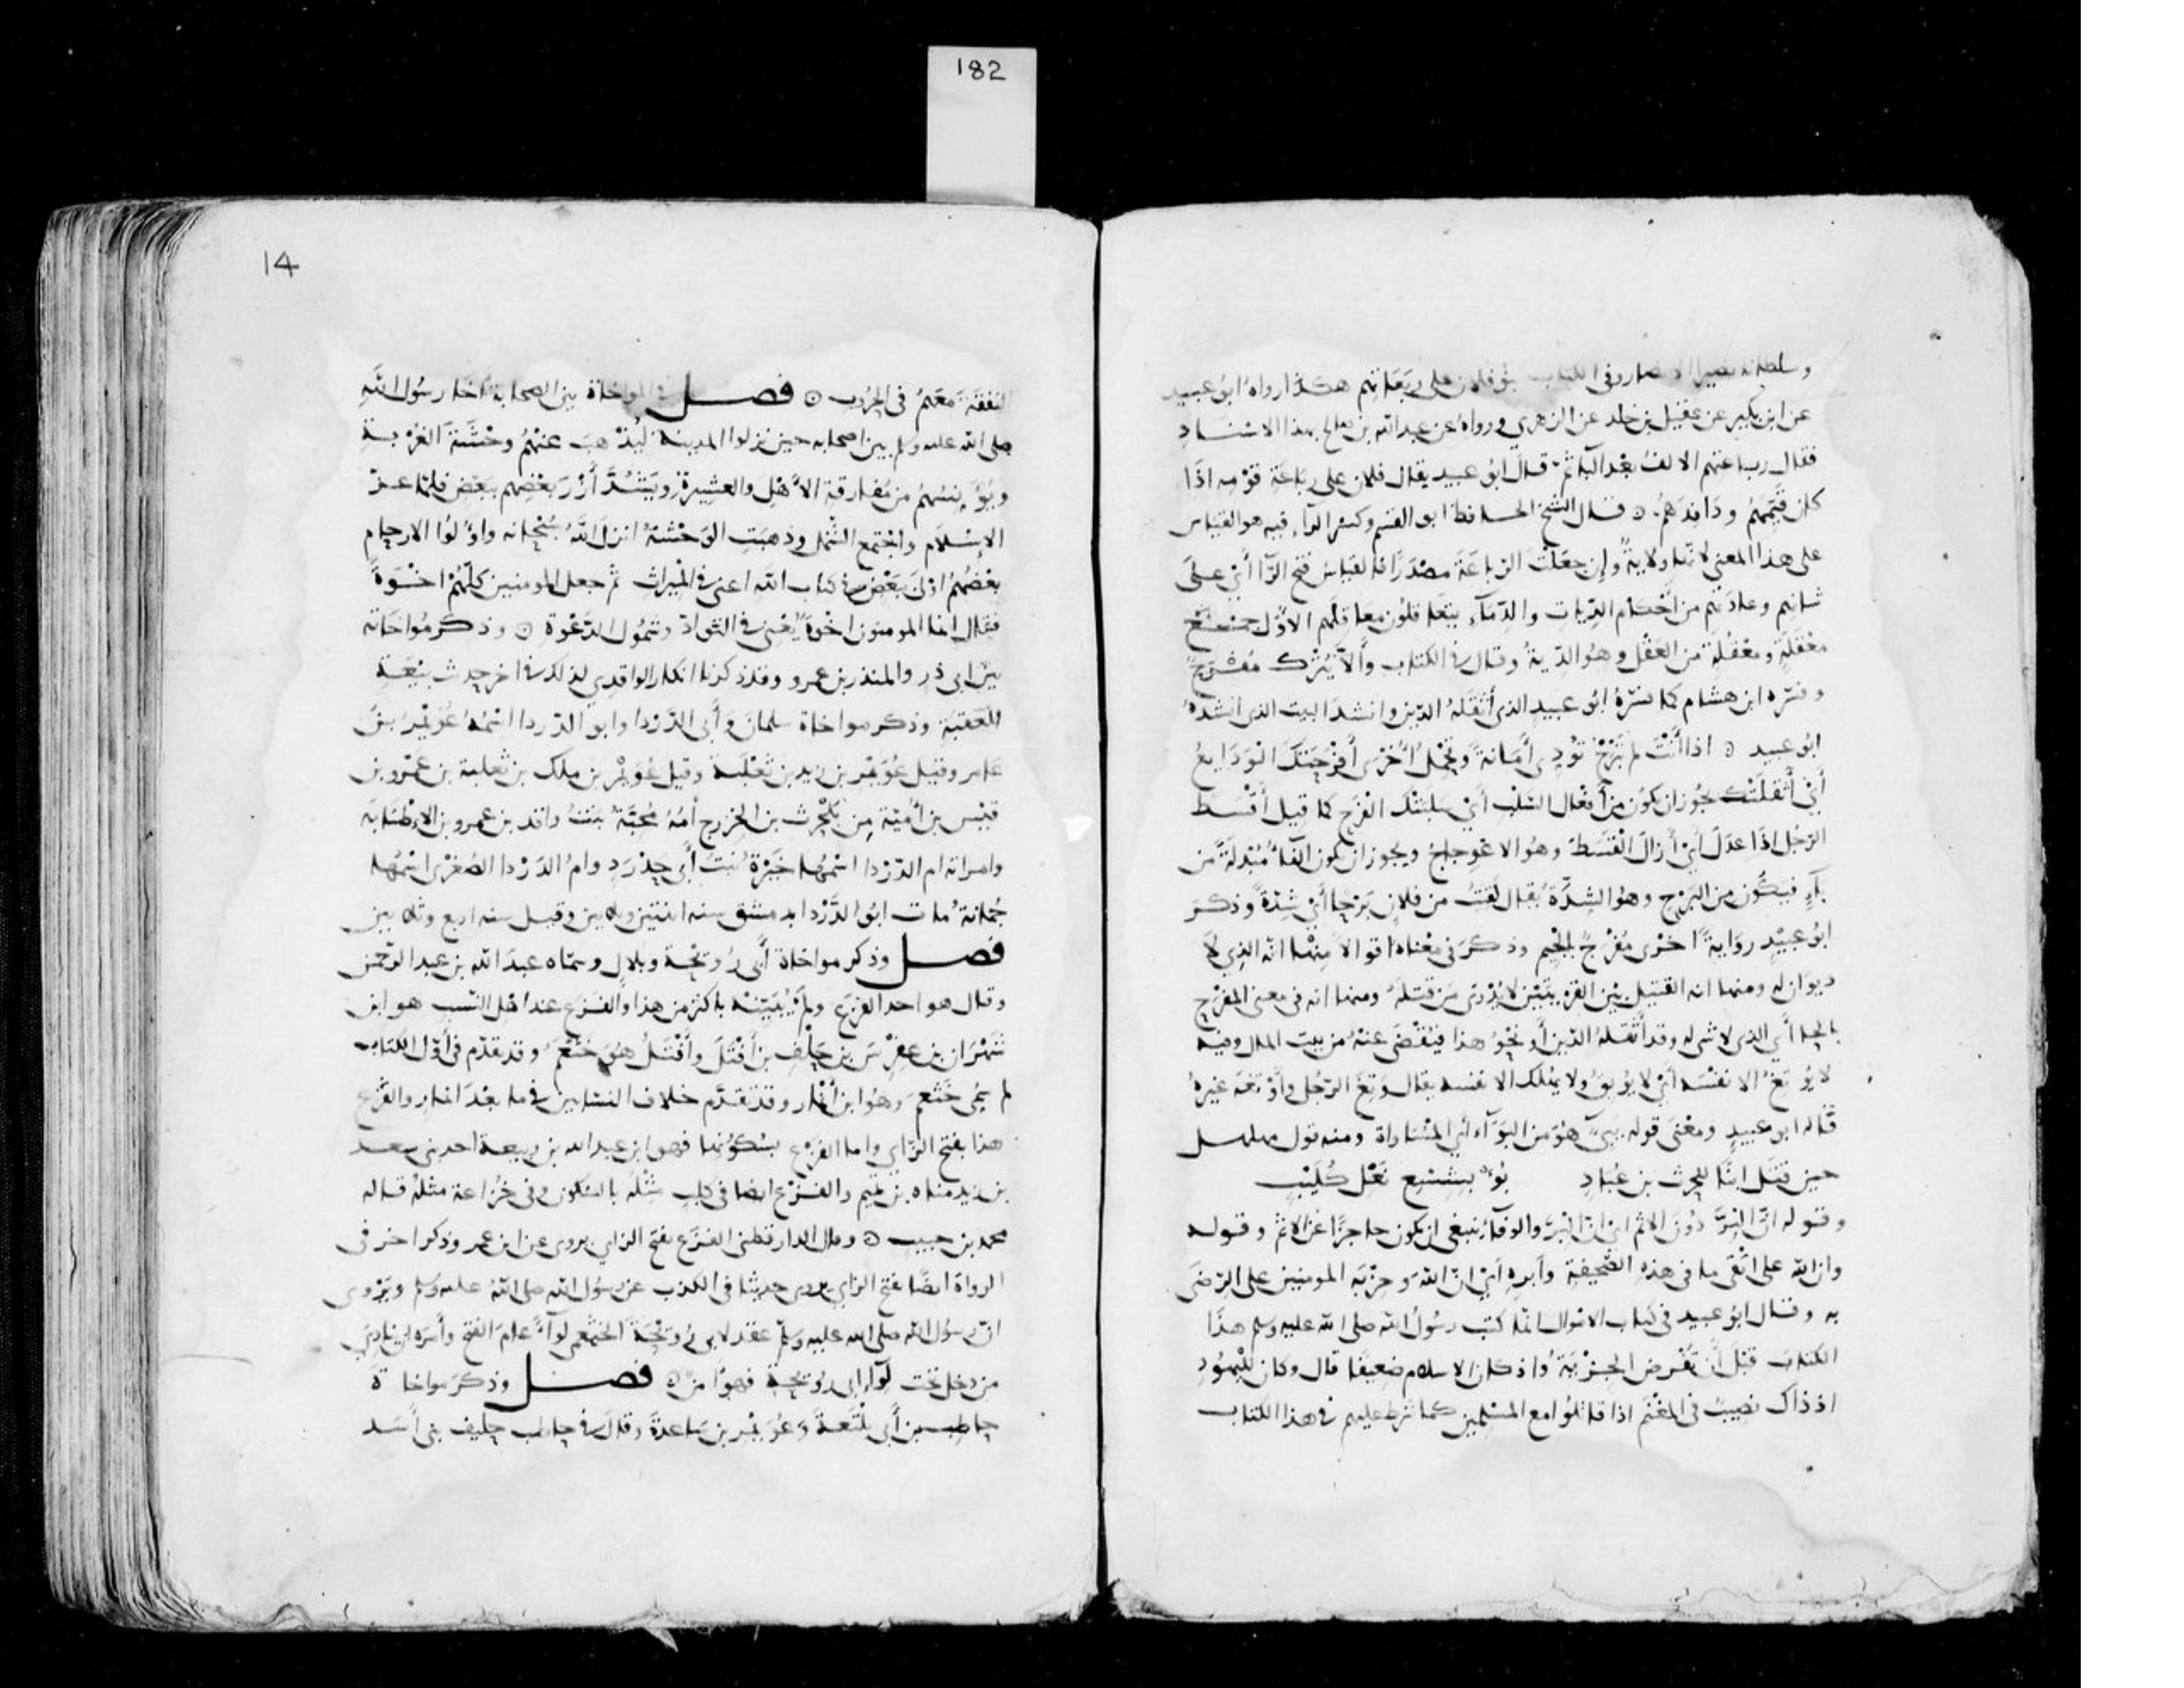 182
وسلطانه نصير الانصار وفى الكتاب بنو فلان على ربعاتهم هكذا رواه ابو عبيد
عن ابن بكير عن عقيل بن خلد عن الزهري ورواه عن عبد الله بن صالح بهذا الاسناد
فقال رباعتهم الالف بعد الباء ثم قال ابو عبيد يقال فلان على رباعة قومه اذا
كان نقيبهم ووافدهم ۞ قال الشيخ الحافظ ابو القسم وكسر الراء فيه هو القياس
على هذا المعنى لانها ولاية وإن جعلت الرباعة مصدرا فالقياس فتح الرا أي على
شانهم وعادتهم من احكام الديات والدماء يتعاقلون معاقلهم الاول جمع
معقلة ومعقلة من العقل وهو الدية وقال في الكتاب وألا يترك مفرح
وفسره ابن هشام كما فسره ابو عبيد الذي أثقله الدين وانشد البيت الذي انشده
ابو عبيد ۞ اذا أنت لم تبرح تؤدى أمانة وتحمل أخرى أفرحتك الودايع
أي أثقلتك يجوز ان يكون من أفعال السلب أي سلبتك الفرح كما قيل أقسط
الرجل اذا عدل أي أزال القسط وهو الاعوجاج ويجوز ان يكون الفاء مبدلة من
باء فيكون من البرح وهو الشدة يقال لقيت من فلان برحا أي شدة وذكر
ابو عبيد رواية اخرى مفرج بالجيم وذكر في معناه اقوالا منها انه الذي لا
ديوان له ومنها انه القتيل بين القريتين لا يدرى من قتله ومنها انه في معنى المفرح
بالحا أي الذي لا شى له وقد أثقله الدين أو نحو هذا فيقضى عنه من بيت المال وفيه
لا يوتغ الا نفسه أي لا يوبق ولا يهلك الا نفسه يقال وتغ الرجل وأوتغه غيره
قاله ابو عبيد ومعنى قوله يبىء هو من البوآء أي المساواة ومنه قول مهلهل
حين قتل ابنا للحرث بن عباد بؤ بشسع نعل كليب
وقوله ان البر دون الاثم اي ان البر والوفاء ينبغي ان يكون حاجزا عن الاثم وقوله
وان الله على اتقى ما في هذه الصحيفة وأبره أي ان الله وحزبه المومنين على الرضى
به وقال ابو عبيد في كتاب الاموال انما كتب رسول الله صلى الله عليه وسلم هذا
الكتاب قبل أن تفرض الجزية واذ كان الاسلام ضعيفا قال وكان لليهود
اذ ذاك نصيب في المغنم اذا قاتلوا مع المسلمين كما شرط عليهم في هذا الكتاب
14
النفقة معهم في الحروب ۞ فصل في المواخاة بين الصحابة آخا رسول الله
صلى الله عليه وسلم بين اصحابه حين نزلوا المدينة ليذهب عنهم وحشة الغربة
ويؤنسهم من مفارقة الأهل والعشيرة ويشد أزر بعضهم ببعض فلما عز
الإسلام واجتمع الشمل وذهبت الوحشة انزل الله سبحانه واولوا الارحام
بعضهم اولى ببعض في كتاب الله اعني في الميراث ثم جعل المومنين كلهم اخوة
فقال انما المومنون اخوة يعني في التواد وشمول الدعوة ۞ وذكر مواخاته
بين ابى ذر والمنذر بن عمرو وقد ذكرنا انكار الواقدي لذلك في اخر حديث بيعة
العقبة وذكر مواخاة سلمان وأبى الدردا وابو الدردا اسمه عويمر بن
عامر وقيل عويمر بن زيد بن ثعلبة وقيل عويمر بن ملك بن ثعلبة بن عمرو بن
قيس بن أمية من بلحرث بن الخزرج أمه محبة بنت واقد بن عمرو بن الإطنابه
وامراته ام الدردا اسمها خيرة بنت أبى حدرد وام الدردا الصغرى اسمها
جمانة مات ابو الدردا بدمشق سنه اثنتين وثلاثين وقيل سنه اربع وثلاثين
فصل وذكر مواخاة أبى رويحة وبلال وسماه عبد الله بن عبد الرحمن
وقال هو احد الفزع ولم يبينه باكثر من هذا والفزع عند اهل النسب هو ابن
شهران بن عفرس بن حلف بن أفتل وأفتل هو خثعم وقد تقدم في أول الكتاب
لم سمى خثعم وهو ابن أنمار وقد تقدم خلاف النسابين في ما بعد انمار والفزع
هذا بفتح الزاي واما الفزع بسكونها فهو ابن عبد الله بن ربيعة احد بني سعد
بن زيد مناه بن تميم والفزع ايضا في كلب مثله بالسكون وفي خزاعة مثله قاله
محمد بن حبيب ۞ وقال الدارقطني الفزع بفتح الزاي يروى عن ابن عمر وذكر اخر في
الرواة ايضا بفتح الزاي يروى حديثا في الكذب عن رسول الله صلى الله عليه وسلم ويروى
ان رسول الله صلى الله عليه وسلم عقد لابى رويحة الخثعمى لوآء عام الفتح وأمره ان ينادي
من دخل تحت لوآء ابى رويحة فهو آمن ۞ فصل وذكر مواخاة
حاطب بن أبى بلتعة وعويمر بن ساعدة وقال في حاطب حليف بنى أسد